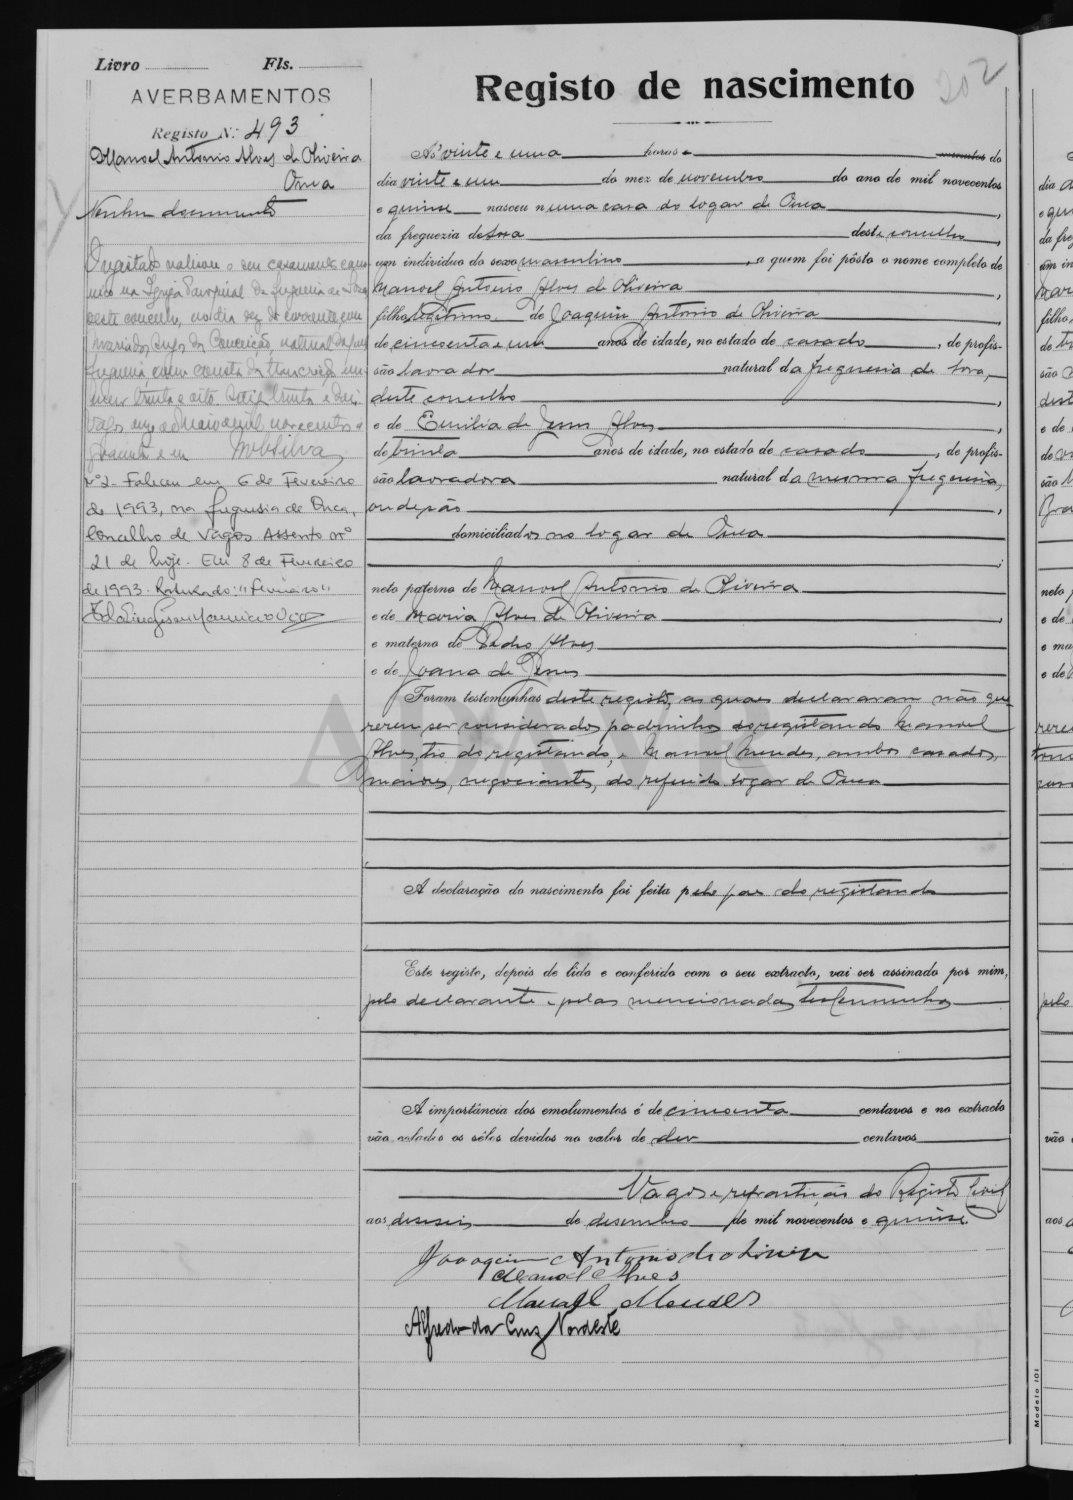 Livro Fls.
AVERBAMENTOS
Registo N.º 493
Manoel Antonio Alves de Oliveira
Ouca
Nenhum documento
O registado realisou o seu casamento cano-
nico na Igreja Paroquial da freguesia de
deste concelho, no dia dez do corrente, com
da Conceição, natural da
freguesia como consta da transcrição nu-
mero trinta e oito
Vagos, maio de mil novecentos e
quarenta e um MSilva
nº2 - Faleceu em 6 de Fevereiro
de 1993, na freguesia de Ouca,
Concelho de Vagos Assento nº
21 de hoje. Em 8 de Fevereiro
de 1993. Rasurado: "Fevereiro"
Registo de nascimento
202
Ás vinte e uma horas e minutos do
dia vinte e um do mez de novembro do ano de mil novecentos
e quinse nasceu numa casa do logar de Ouca,
da freguezia de Soza deste concelho,
um individuo do sexo masculino, a quem foi pôsto o nome completo de
Manoel Antonio Alves de Oliveira,
filho legitimo de Joaquim Antonio de Oliveira,
de cincoenta e um anos de idade, no estado de casado, de profis-
são lavrador natural da freguesia de Soza,
deste concelho,
e de Emilia de Jesus Alves,
de trinta anos de idade, no estado de casada, de profis-
são lavradora natural da mesma freguesia,
onde são,
domiciliados no logar de Ouca
;
neto paterno de Manoel Antonio de Oliveira
e de Maria Alves de Oliveira,
e materno de Pedro Alves
e de Joana de Jesus
Foram testemunhas deste registo, as quaes declararam não que-
rerem ser considerados padrinhos do registando Manoel
Alves, tio do registando, e Manoel Mendes, ambos casados,
maiores, negociantes, do referido logar de Ouca
A declaração do nascimento foi feita pelo pae do registando
Este registo, depois de lido e conferido com o seu extracto, vai ser assinado por mim,
pelo declarante e pelas mencionadas testemunhas
A importância dos emolumentos é de cincoenta centavos e no extracto
vão colados os sêlos devidos no valor de dez centavos
Vagos e repartição do Registo Civil
aos deseseis de desembro de mil novecentos e quinse.
Joaquim Antonio de Oliveira
Manoel Alves
Manoel Mendes
Alfredo da Cruz Nordeste
Modelo 101